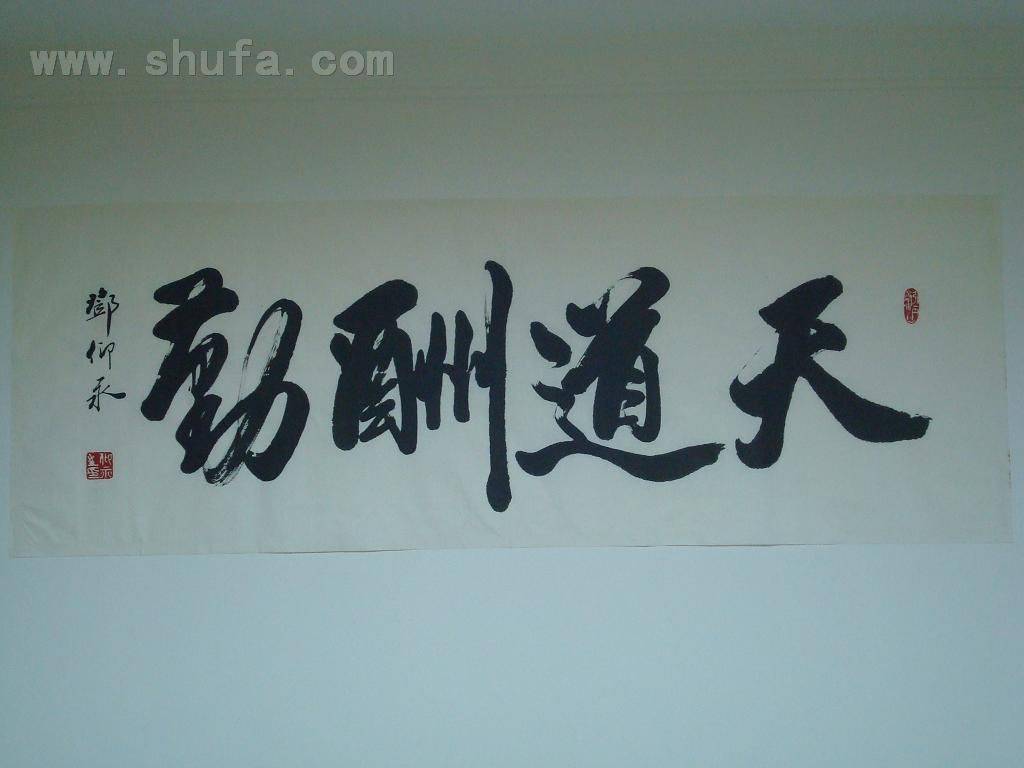 www.shufa.com
天道酬勤
鄧仰永